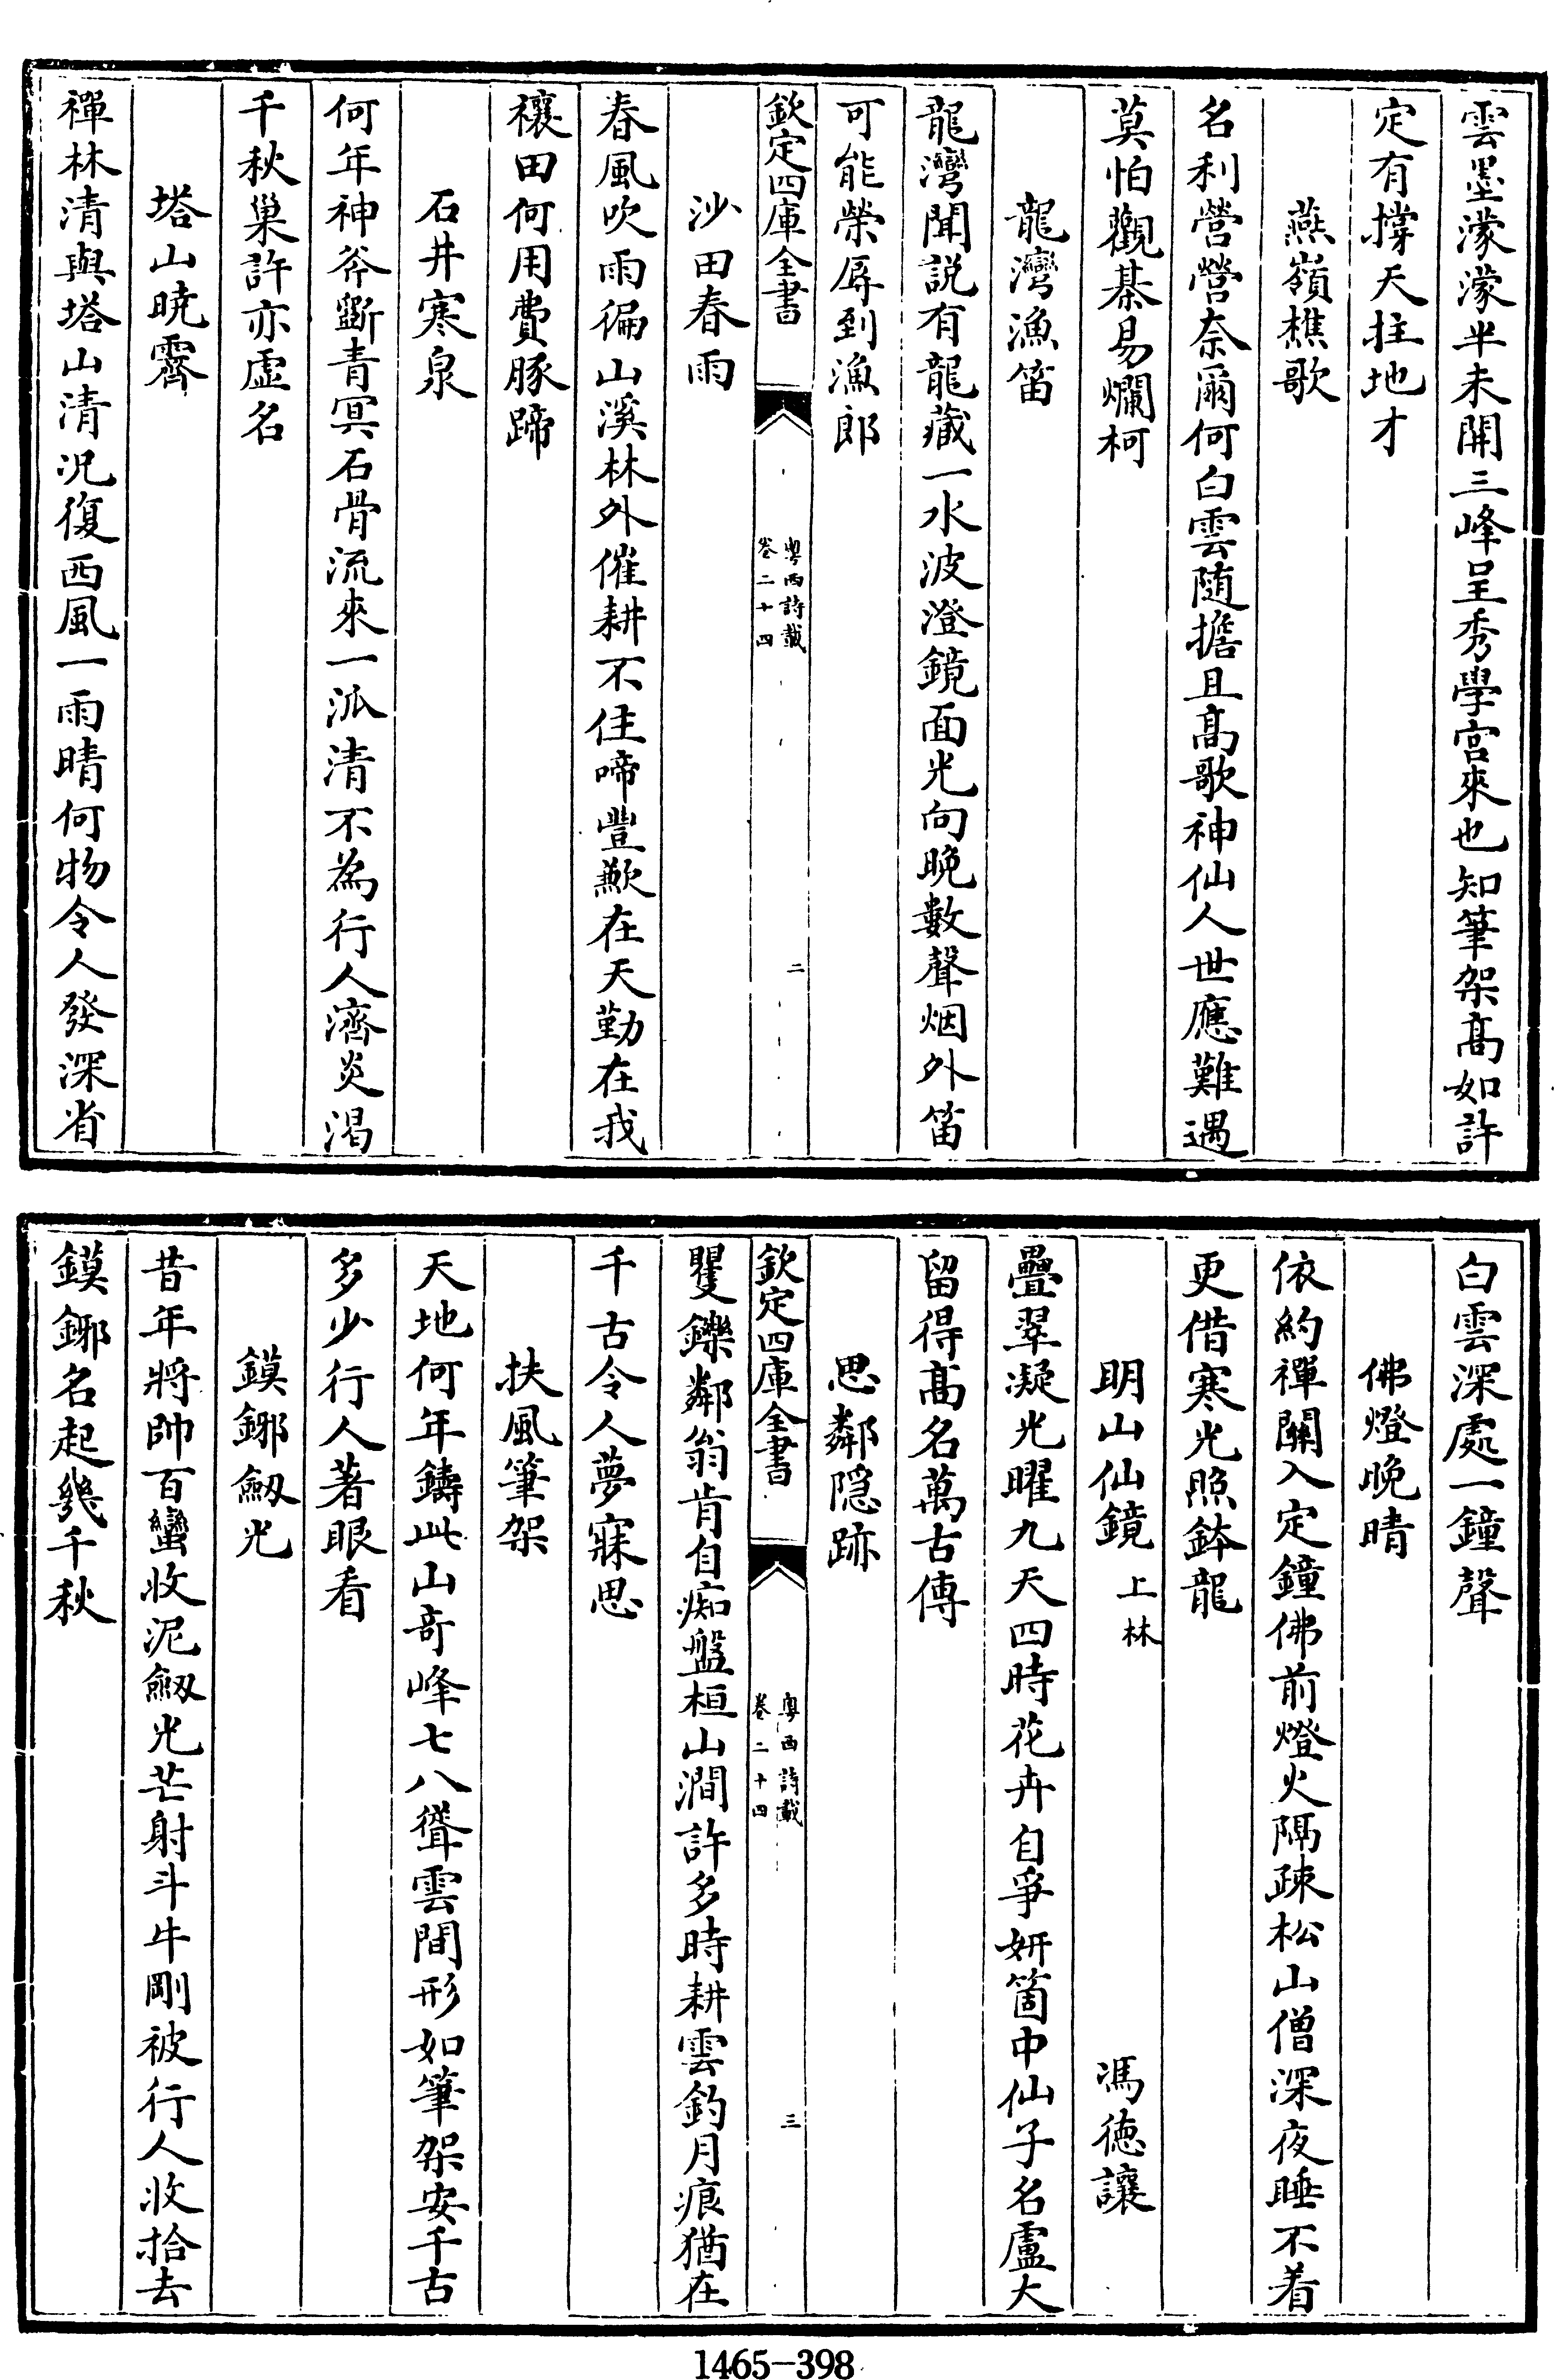 雲墨濛濛半未開三峰呈秀學宫來也知筆架高如許
定有撐天拄地才
燕嶺樵歌
名利營營奈爾何白雲随擔且高歌神仙人世應難遇
莫怕觀棊易爛柯
龍灣漁笛
龍灣聞説有龍藏一水波澄鏡面光向晚數聲烟外笛
可能榮辱到漁郎
欽定四庫全書
粤西詩載
卷二十四
二
沙田春雨
春風吹雨徧山溪林外催耕不住啼豐歉在天勤在我
禳田何用費豚蹄
石井寒泉
何年神斧斵青冥石骨流來一派清不為行人濟炎渴
千秋巢許亦虛名
塔山曉霽
禪林清與塔山清况復西風一雨晴何物令人發深省
白雲深處一鐘聲
佛燈晚晴
依約禪關入定鐘佛前燈火隔疎松山僧深夜睡不着
更借寒光照鉢龍
明山仙鏡 上林 馮德讓
疊翠凝光曜九天四時花卉自爭妍箇中仙子名盧大
留得高名萬古傳
思鄰隠跡
欽定四庫全書
粤西詩載
卷二十四
三
矍鑠鄰翁肯自痴盤桓山澗許多時耕雲釣月痕猶在
千古令人夢寐思
扶風筆架
天地何年鑄此山奇峰七八聳雲間形如筆架安千古
多少行人著眼看
鏌鎁劒光
昔年將帥百蠻收泥劒光芒射斗牛剛被行人收拾去
鏌鎁名起幾千秋
1465-398